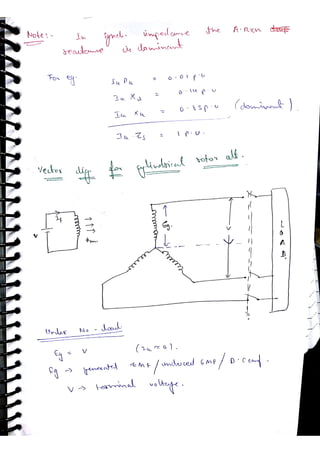 Note:- In synch. impedance the A.Rxn
reactance is dominant
For eg. Ia Ra = 0.01 p.u
Ia Xl = 0.14 p.u
Ia Xa = 0.85 p.u (dominant).
Ia Zs = 1 p.u.
Vector dig for cylindrical rotor alt.
If
V
Eg
V
LOAD
Under No-load
Eg = V (Ia = 0).
Eg → generated EMF/induced EMF/
V → terminal voltage.